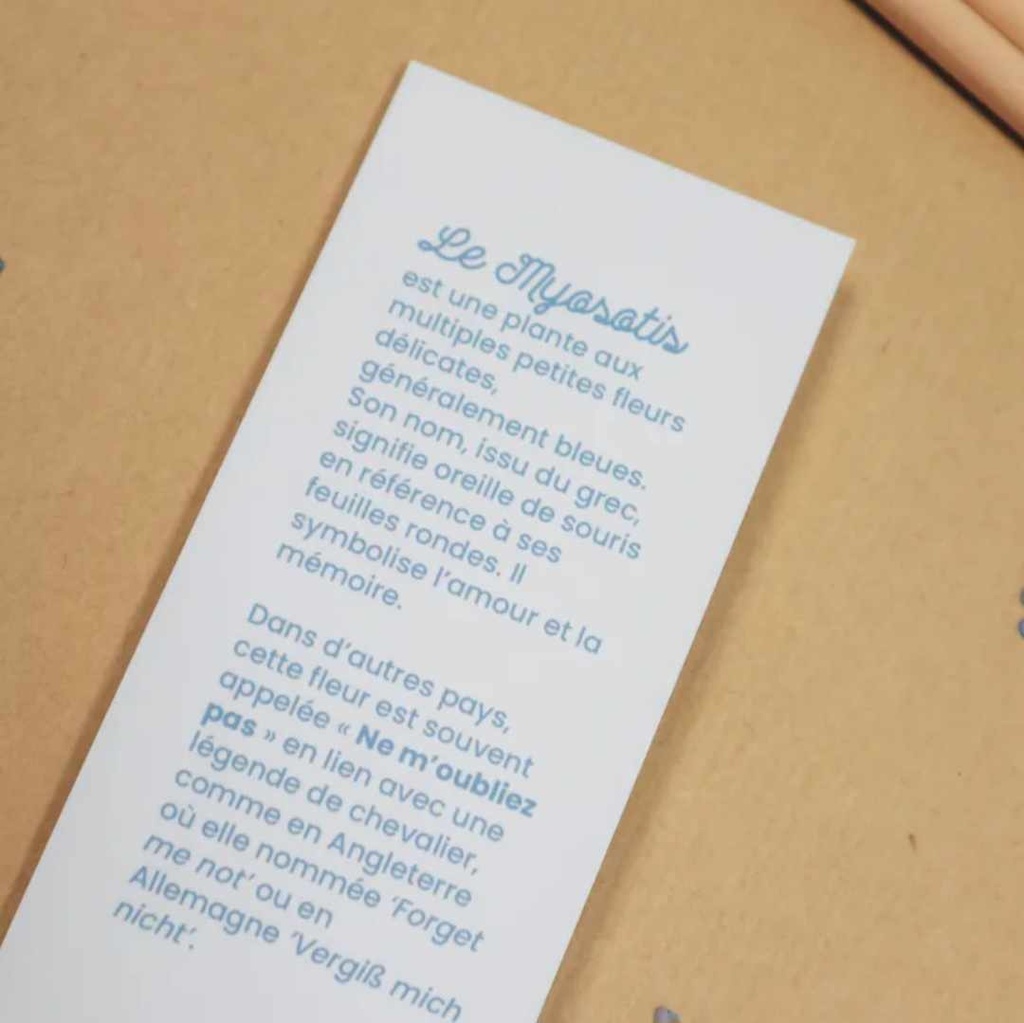 Le Myosotis
est une plante aux
multiples petites fleurs
délicates,
généralement bleues.
Son nom, issu du grec,
signifie oreille de souris
en référence à ses
feuilles rondes. Il
symbolise l'amour et la
mémoire.
Dans d'autres pays,
cette fleur est souvent
appelée « Ne m'oubliez
pas » en lien avec une
légende de chevalier,
comme en Angleterre
où elle nommée 'Forget
me not' ou en
Allemagne 'Vergiß mich
nicht'.